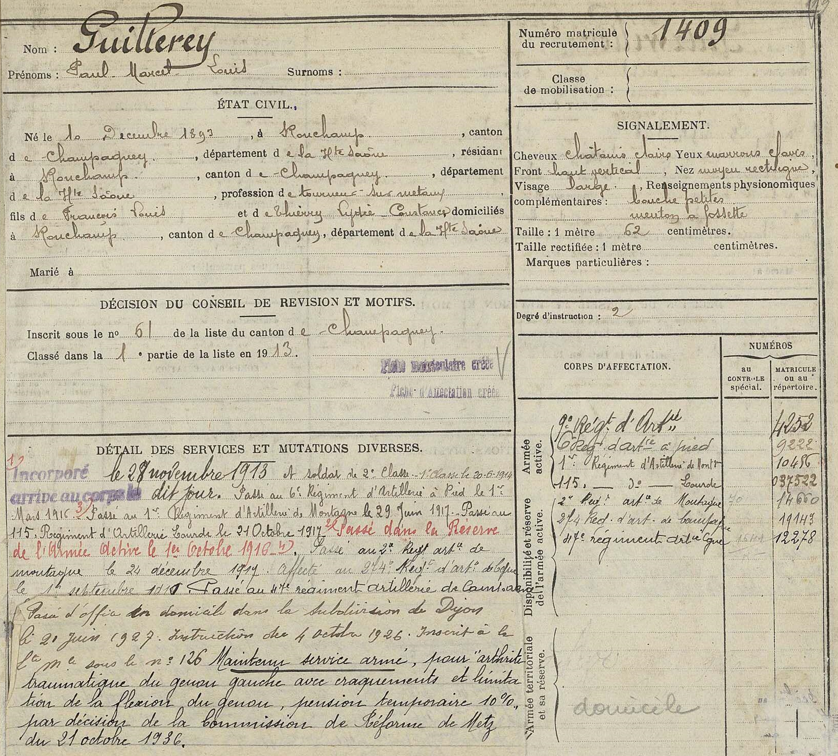 Nom : Guillerey
Prénoms : Paul Marcel Louis Surnoms :
Numéro matricule du recrutement : 1409
Classe de mobilisation :
ÉTAT CIVIL.
Né le 10 Décembre 1893, à Ronchamp, canton
de Champagney, département de la Hte Saône, résidant
à Ronchamp, canton de Champagney, département
de la Hte Saône, profession de tourneur sur métaux
fils de François Louis et de Thièrry Lydie Constance domiciliés
à Ronchamp, canton de Champagney, département de la Hte Saône
Marié à
SIGNALEMENT.
Cheveux châtains clairs Yeux marrons clairs,
Front haut vertical, Nez moyen rectiligne,
Visage large, Renseignements physionomiques
complémentaires : bouche petite
menton à fossette
Taille : 1 mètre 62 centimètres.
Taille rectifiée : 1 mètre centimètres.
Marques particulières :
Degré d'instruction : 2
DÉCISION DU CONSEIL DE REVISION ET MOTIFS.
Inscrit sous le no 61 de la liste du canton de Champagney.
Classé dans la 1e partie de la liste en 1913.
Fiche matriculaire créée
Fiche d'Affectation créée
CORPS D'AFFECTATION.
NUMÉROS
AU CONTRÔLE spécial.
MATRICULE OU AU répertoire.
Armée active.
9e Régt d'Artie 4252
6e Régt d'artie à pied 9222
1er Régiment d'Artillerie de Montе 10486
115e do Lourde 037522
Disponibilité et réserve de l'armée active.
2e Régt arte de Montagne 14660
274 Rég. d'art. de campagne 19143
47e régiment artie Cgne 12278
Armée territoriale et sa réserve.
domicile
DÉTAIL DES SERVICES ET MUTATIONS DIVERSES.
Incorporé le 28 novembre 1913 et soldat de 2e Classe.
arrivé au corps le dit jour. Passé au 6e Régiment d'Artillerie à Pied le 1er
Mars 1916. Passé au 1er Régiment d'Artillerie de Montagne le 29 Juin 1917. Passé au
115e Régiment d'Artillerie Lourde le 21 Octobre 1917 Passé dans la Réserve
de l'Armée Active le 1er Octobre 1916. Passé au 2e Régt art. de
montagne le 24 décembre 1917. Affecté au 274e Régt d'art. de Cgne
le 1er septembre Passé au 47e régiment artillerie de Campagne
Passé d'office en domicile dans la subdivision de Dijon
le 20 juin 1927. Instruction du 4 octobre 1926. Inscrit à la
sous le no 126 Maintenu service armé, pour "arthrite
traumatique du genou gauche avec craquements et limita
tion de la flexion du genou, pension temporaire 10%,
par décision de la Commission de Réforme de Metz
du 21 octobre 1936.